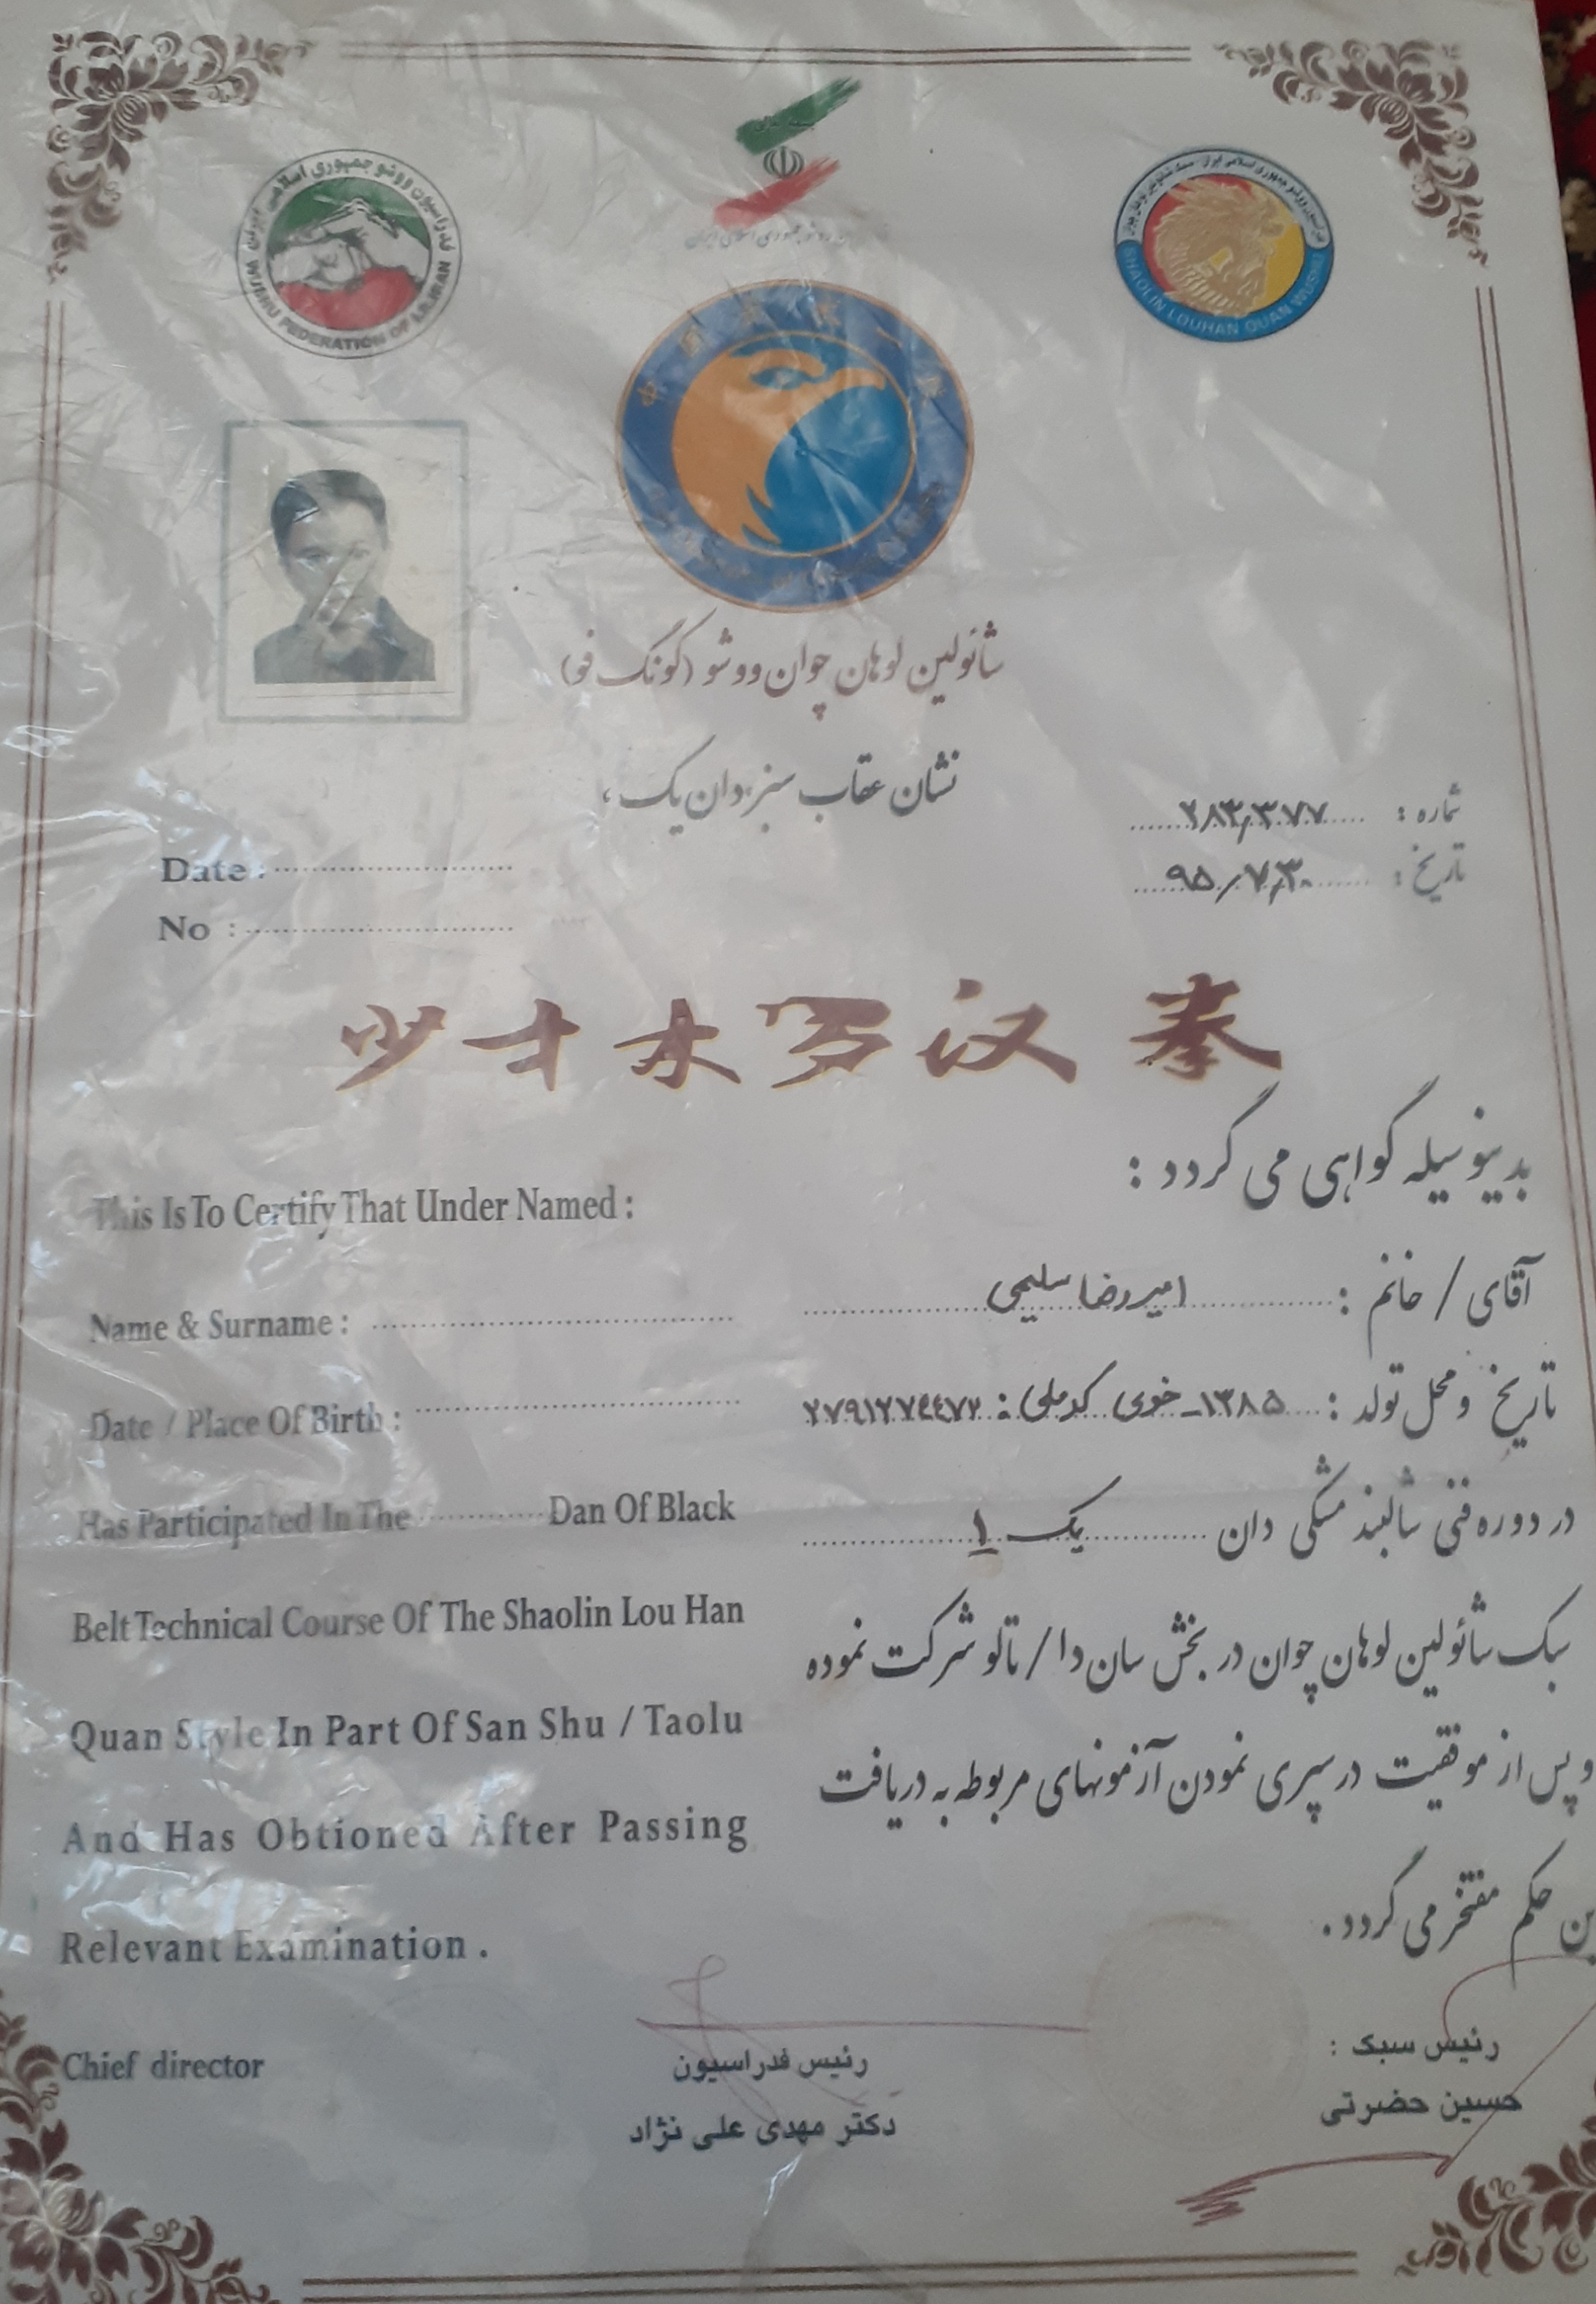 بسمه تعالی
فدراسیون ووشو جمهوری اسلامی ایران
WUSHU FEDERATION OF I.R.IRAN
SHAOLIN LOUHAN QUAN WUSHU
شائولین لوهان چوان ووشو (کونگ فو)
نشان عقاب سبز، دان یک،
شماره : ۲۸۳٫۳۷۷
تاریخ : ۹۵/۷/۳۰
Date :
No :
少林羅汉拳
بدینوسیله گواهی می گردد :
This Is To Certify That Under Named :
آقای / خانم : امیررضا سلیمی
Name & Surname :
تاریخ و محل تولد : ۱۳۸۵ - خوی کد ملی :
Date / Place Of Birth :
در دوره فنی شالبند مشکی دان یک ۱
Has Participated In The Dan Of Black
سبک شائولین لوهان چوان در بخش سان دا / تالو شرکت نموده
Belt Technical Course Of The Shaolin Lou Han
و پس از موفقیت در سپری نمودن آزمونهای مربوطه به دریافت
Quan Style In Part Of San Shu / Taolu
ین حکم مفتخر می گردد .
And Has Obtioned After Passing
Relevant Examination .
رئیس سبک :
حسین حضرتی
رئیس فدراسیون
دکتر مهدی علی نژاد
Chief director